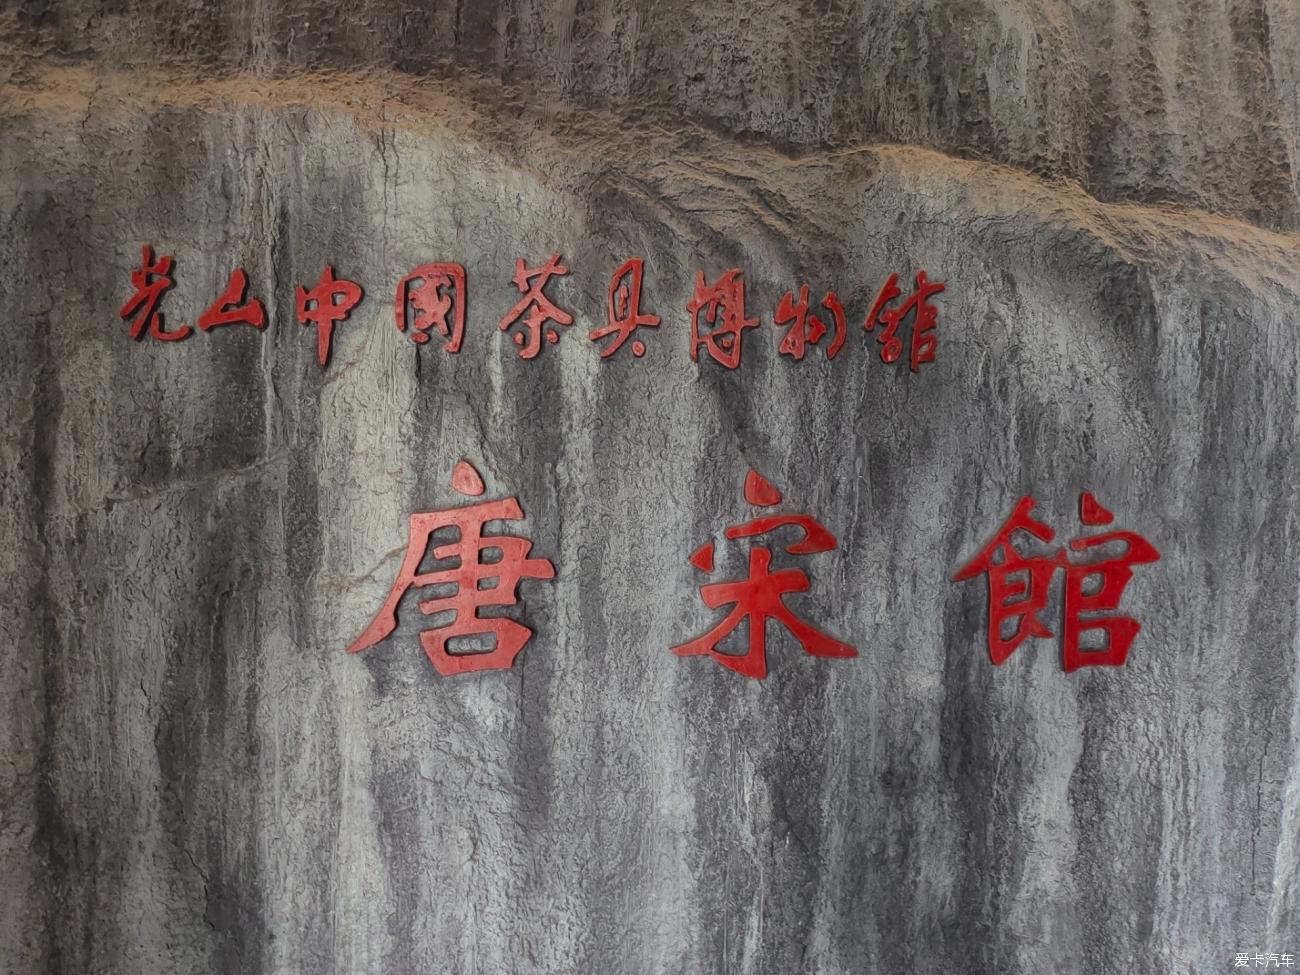 光山中國茶具博物館
唐宋館
爱卡汽车